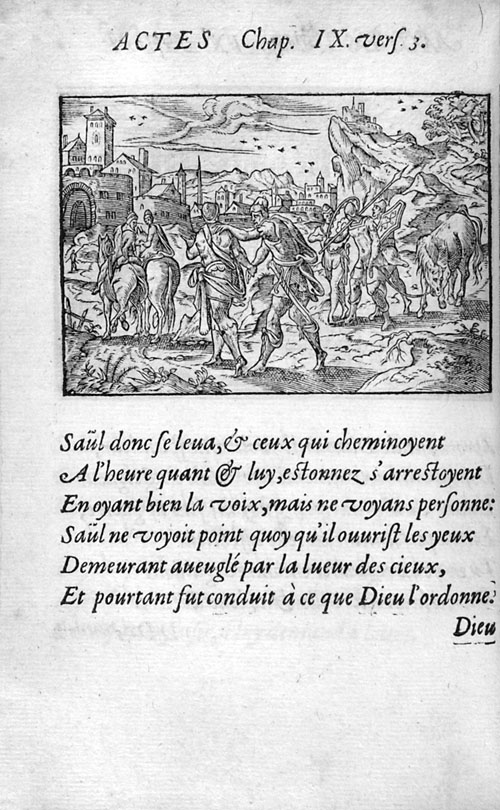 ACTES Chap. IX. vers. 3.
Saül donc se leua, & ceux qui cheminoyent
A l'heure quant & luy, estonnez s'arrestoyent
En oyant bien la voix, mais ne voyans personne:
Saül ne voyoit point quoy qu'il ouurist les yeux
Demeurant aueuglé par la lueur des cieux,
Et pourtant fut conduit à ce que Dieu l'ordonne.
Dieu